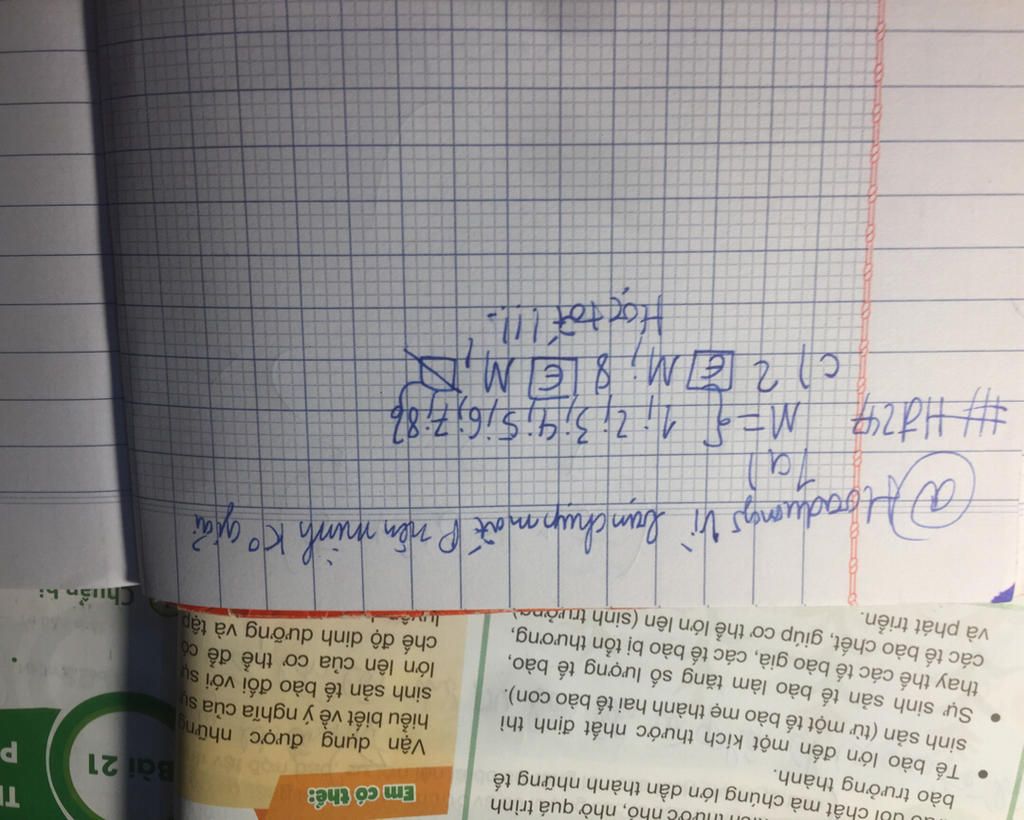 ...ao đổi chất mà chúng lớn dần thành những tế
bào trưởng thành.
• Tế bào lớn đến một kích thước nhất định thì
sinh sản (từ một tế bào mẹ thành hai tế bào con).
• Sự sinh sản tế bào làm tăng số lượng tế bào,
thay thế các tế bào già, các tế bào bị tổn thương,
các tế bào chết, giúp cơ thể lớn lên (sinh trưởng)
và phát triển.
Em có thể:
Vận dụng được những
hiểu biết về ý nghĩa của sự
sinh sản tế bào đối với sự
lớn lên của cơ thể để có
chế độ dinh dưỡng và tập
Bài 21
Chuẩn bị
@ Hoaduongs Vì bạn chụp mất P nên mình K° giải
1a)
#HĐ247 M = { 1; 2; 3; 4; 5; 6; 7; 8}
c) 2 ∈ M; 8 ∈ M;
Học tốt !!!